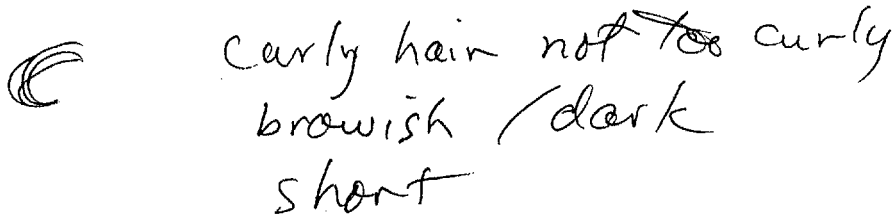 curly hair not too curly
browish / dark
short